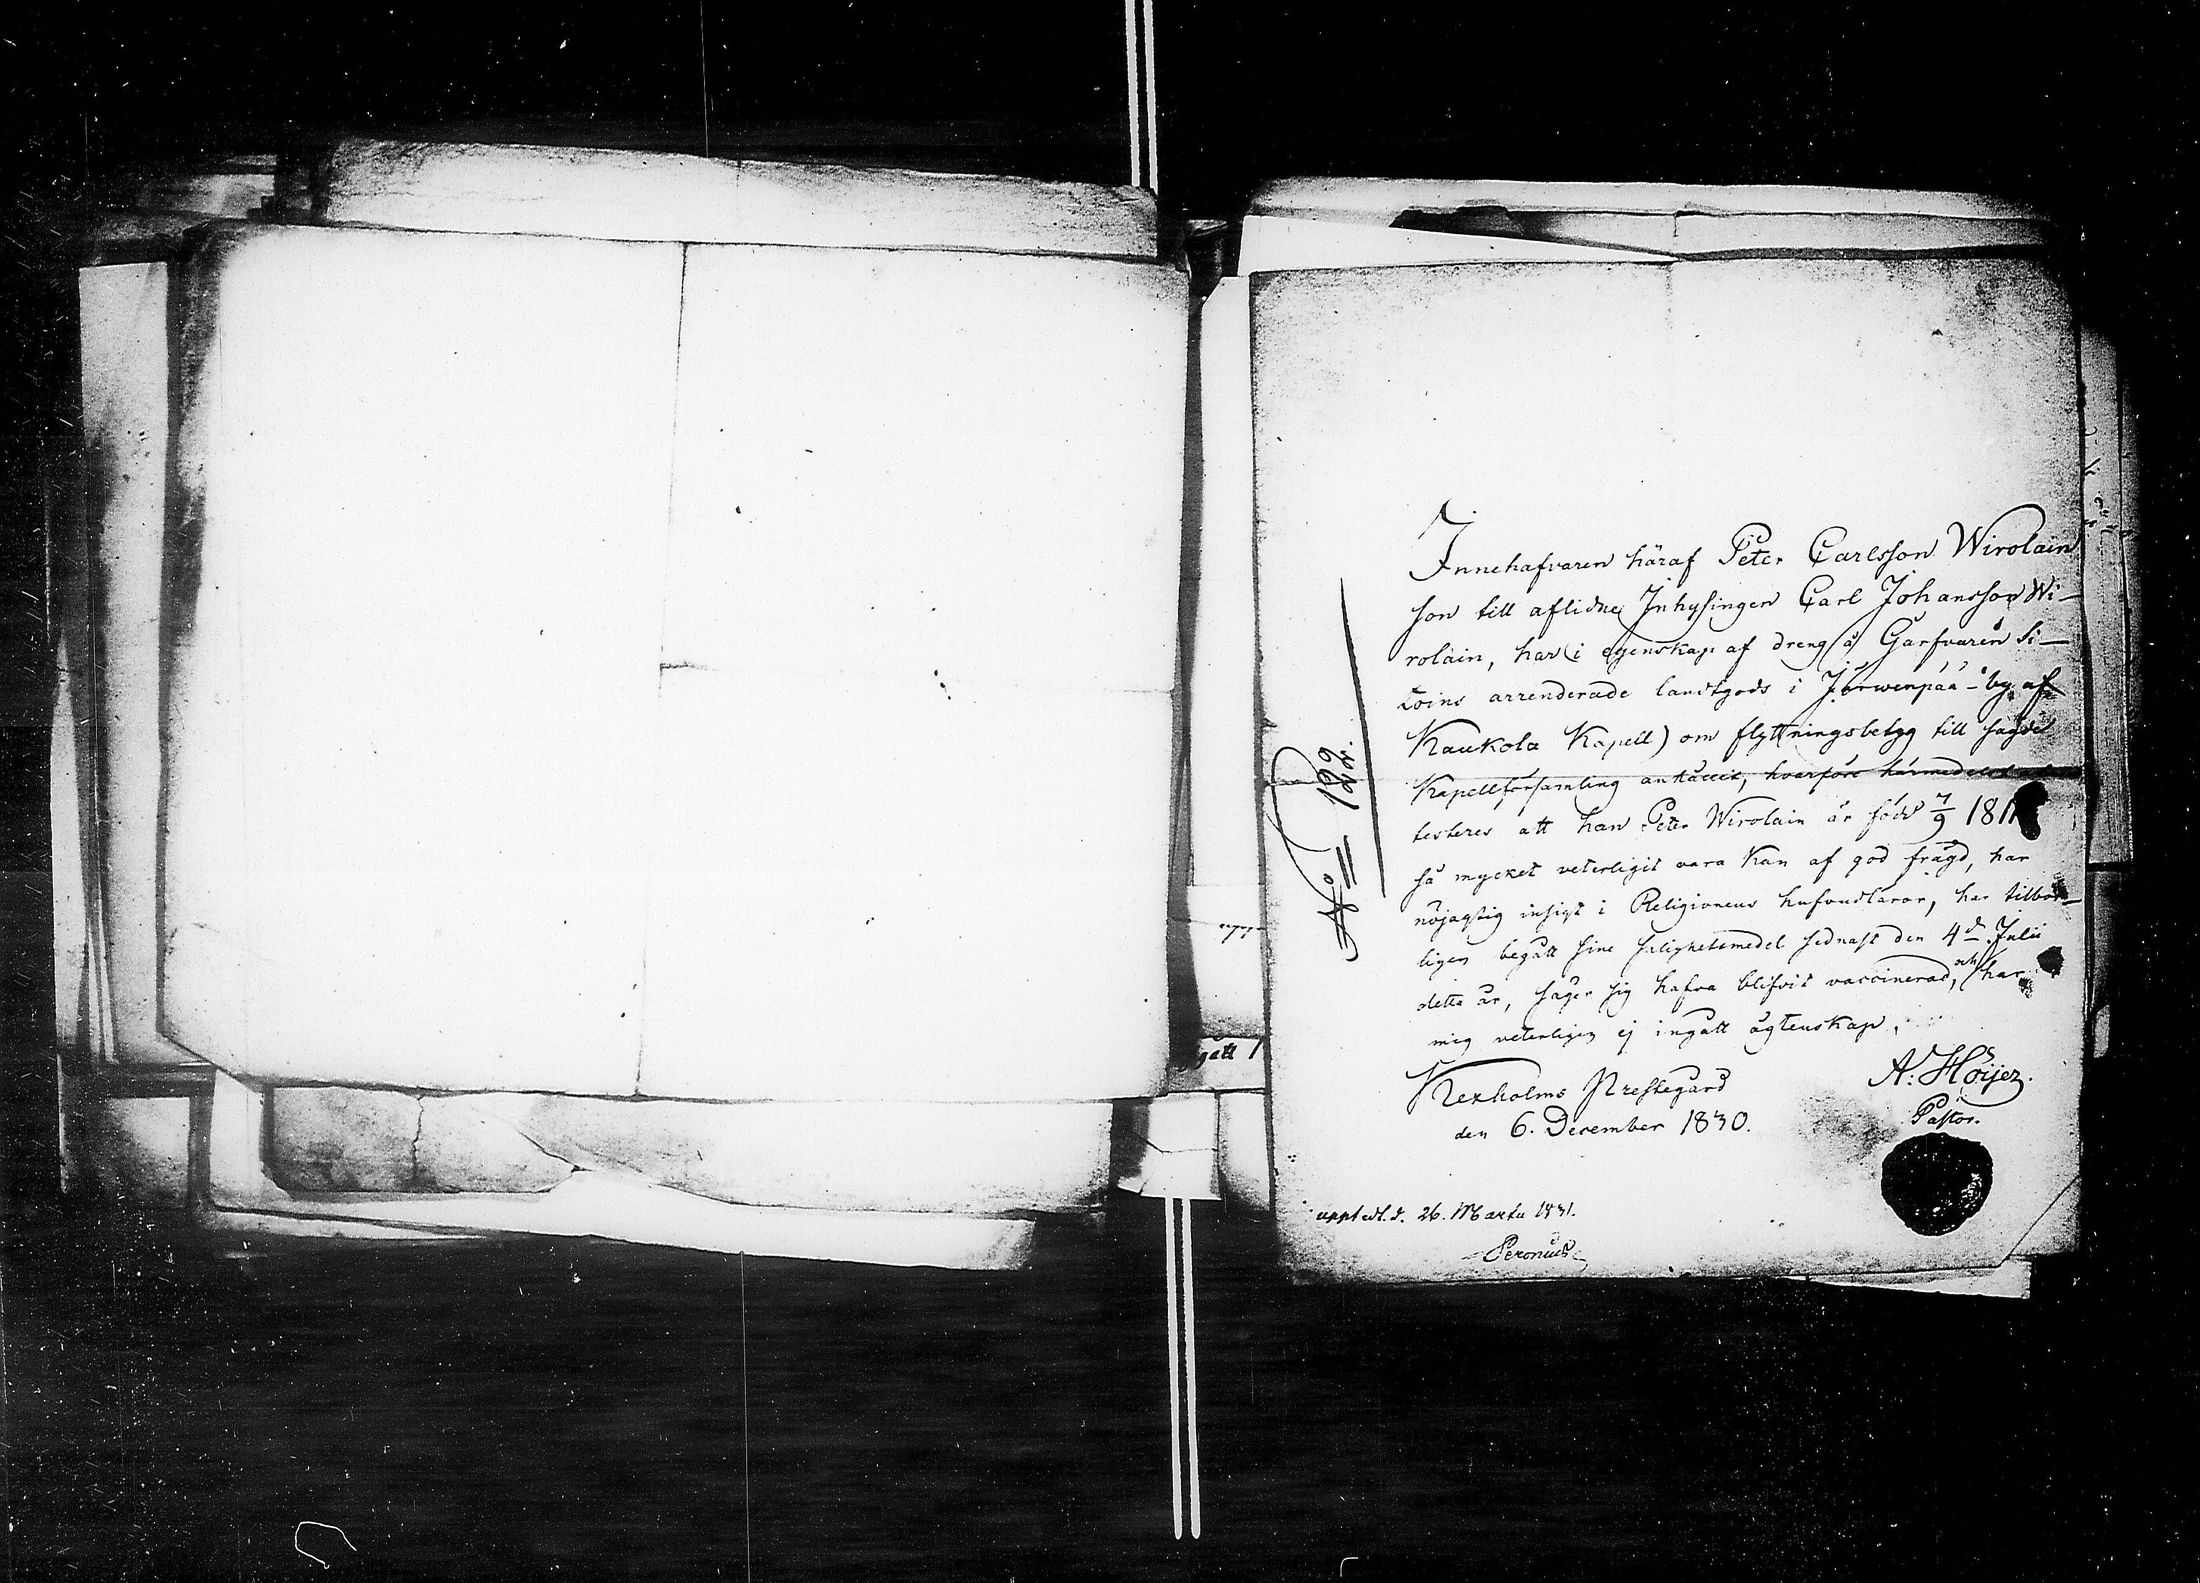 No 129
Innehafvaren häraf Peter Carlsson Wirolain
son till aflidne Inhysingen Carl Johansson Wi-
rolain, har (i egenskap af dreng å Garfvaren Si-
toins arrenderade landtgods i Järwenpää - by af
Kaukola Kapell) om flyttningsbetyg till sagde
Kapellförsamling anhållit, hvarföre härmedelst
testeres att han Peter Wirolain är född 7/9 181
så mycket veterligit vara kan af god frägd, har
nöjagtig insigt i Religionens hufvudläror, har tilbör-
ligen begått sine salighetsmedel sednast den 4d Julii
detta år, säger sig hafva blifvit vaccinerad, och har
mig veterligen ej ingått ägtenskap.
Kexholms Prestegård
den 6. December 1830.
A: Höijer.
Pastor.
uppt edt. d. 26. Martii 1831.
Peronius
gått 1